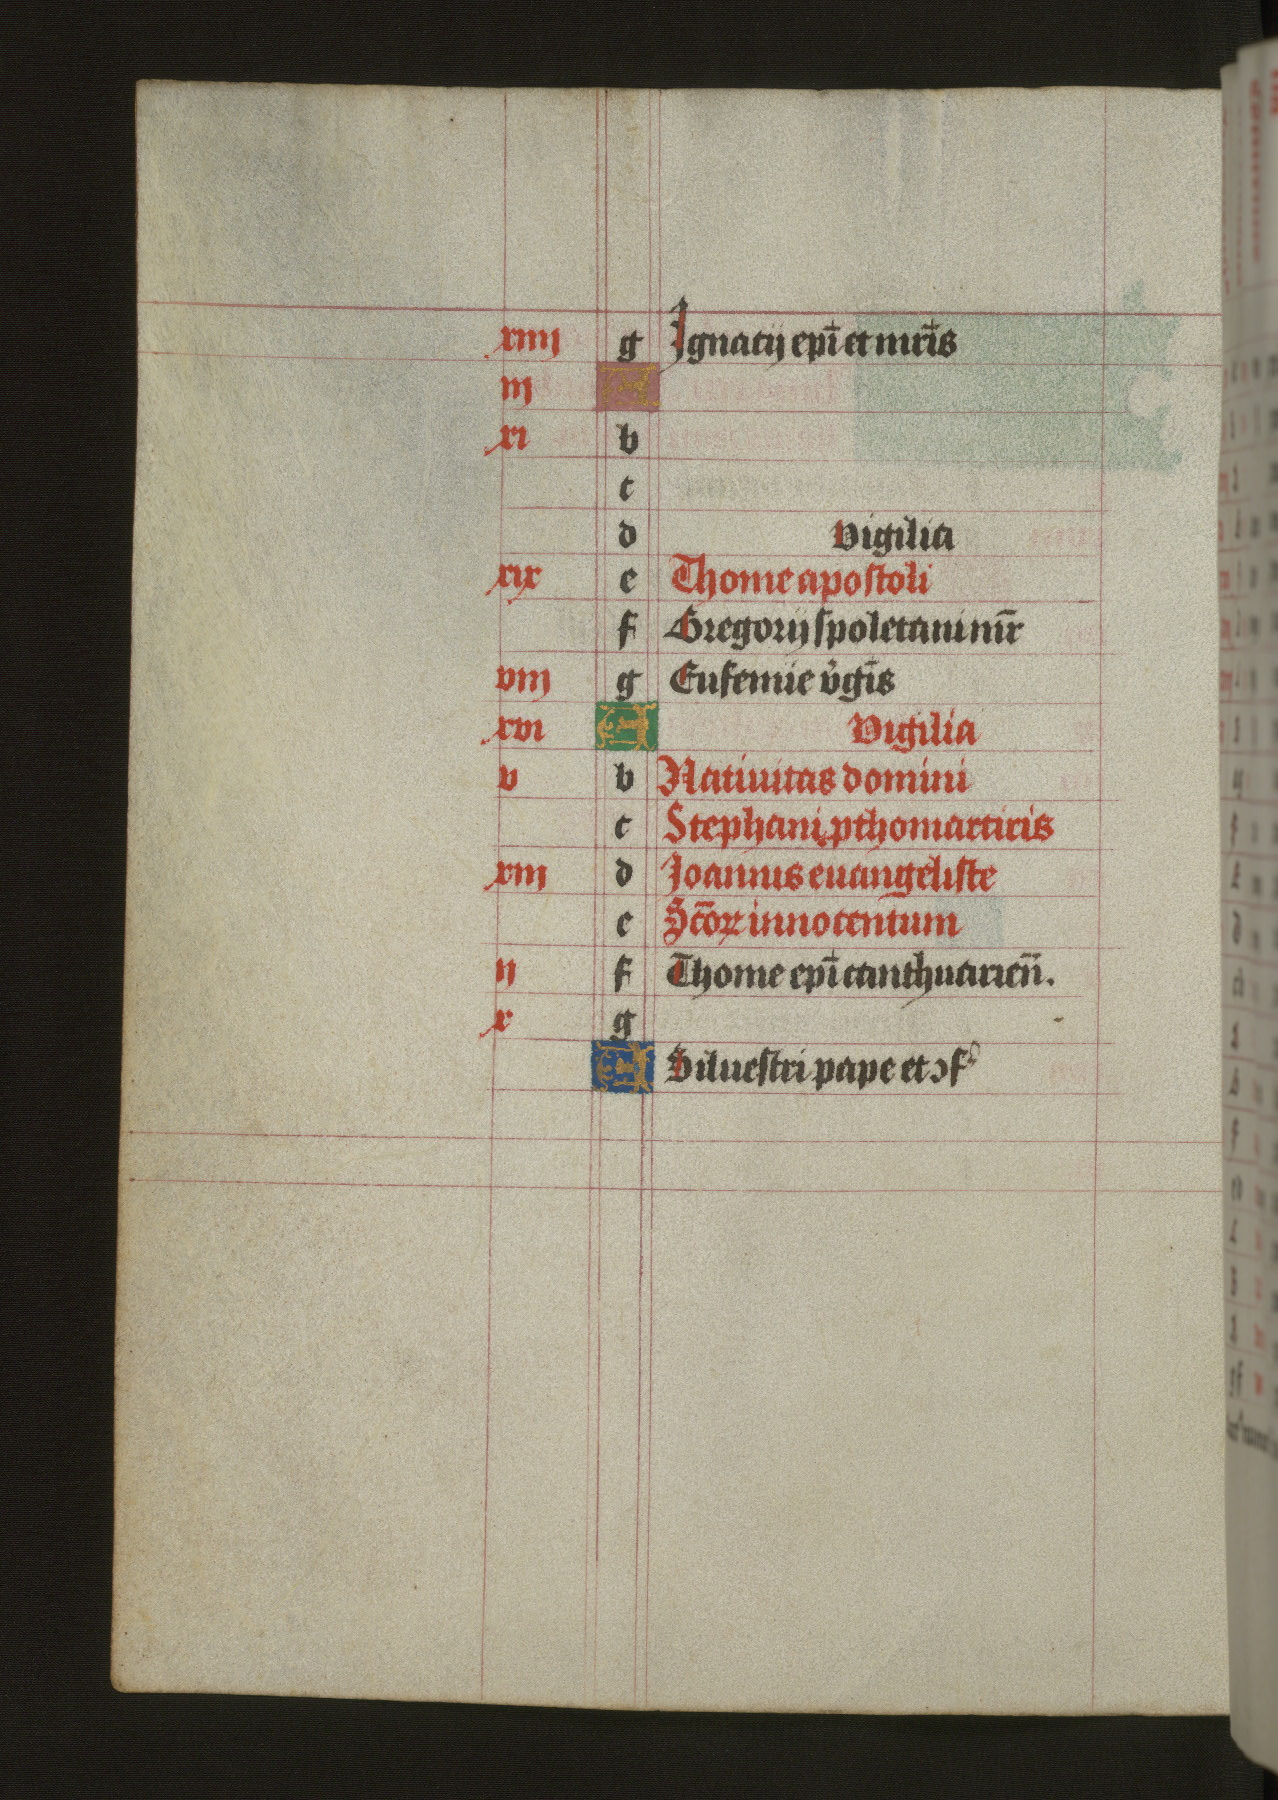 xiiij g Ignacij ep̄i et mr̄is
iij A
xi b
c
d Vigilia
xix e Thome apostoli
f Gregorij spoletani mr̄
viij g Eufemie v̾gīs
xvi A Vigilia
v b Natiuitas domini
c Stephani pthomartiris
xiij d Joannis euangeliste
e Sc̄oꝝ innocentum
ij f Thome ep̄i canthuarien̄.
x g
A Siluestri pape et ↄf